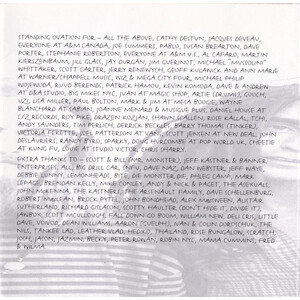 STANDING OVATION FOR - ALL THE ABOVE, CATHY DETTUN, JACQUES DEVEAU,
EVERYONE AT A&M CANADA, JOE SUMMERS, PABLO, SUSAN BREARTON, DAVE
PORTER, STEPHANIE ROBERTSON, EVERYONE AT A&M U.S., AL CAFARO, MARTIN
KIERSZENBAUM, JILL GLASS, JAY DURGAN, JIM GUERINOT, MICHAEL "MUSSOLINI"
WHITTAKER, SCOTT CARTER, JERRY RENEWYCH, GEOFF KULAWICK AND ANN MARIE
AT WARNER/CHAPPELL MUSIC, WIZ & MEGA CITY FOUR, MICHAEL PHILIP
WOJEWODA, RUUD BERENDS, PATRICK HAMOU, KEVIN KOMODA, DAVE & ANDREW
AT D&A STUDIO, BIG MIKES NYC, JUAN AT MAGIC SHOP, ARTIE
UZI, LISA MILLER, PAUL BOLTON, MARK & JIM AT MEGA BOOGIE, WAYNE
BLANCHARD AT CABIN, JOANNE MENARD & MUSIQUE PLUS, DANIEL HOUSE AT
C/Z RECORDS, ROY PIKE, DRAZEN KOZJAN, SHAWN SCALLEN, ROSIE KALLAL,
ANDY SAUNDERS, TIM PERLICH, DERRICK BECKLEY, BARRY THOMAS
VICTORIA FEKETTE, PATTERSON AT V.I.P., SCOTT JENSEN AT NEW DEAL, JOHN
DELAURIERS, RANDY BOYD, SPARKY, DOUG HURCOMBE AT POP WORLD UK, CHEETIE
AT KUNG FU, LOUIE AT STUDIO VICTOR, CHRIS SHARPE.
EXTRA THANKS TO - SCOTT & BILL (THE MONSTER), JEFF KASTNER & BANNER
ENTERPRISES, ALL BIG DRILL CAR, INFO, DAVE NAZ, DAN WEBSTER, JEFF WART,
DEBBIE GUNNY, LEMONHEADS, BITS, DEE MONSTER DR, PIERS, CAMP, MARK
LEPAGE, BRENDAN KELLY, MIKE DONLEY, ANDY & NICK & PAGET, THE ASEXUALS,
JOHN MAKENNA, THE KASTNERS, THE ARSENAULT FAMILY, DAVE SCHELLENBURG,
ROBERT MCLEAN, BROCK PYTEL, JOHN BONDHEAD, ALEX MACSWEEN, ALISTAIR
SUTHERLAND, RICHARD GLEASON, SCOTTY HAULTER (DON'T HIDE IT, DIVIDE IT),
JAWBOX, SCOTT MCCULLOUGH, FALL DOWN GO BOOM, WILLIAM NEW, DELI CRIS, LITTLE
DAVE, VOIVOD, DEAN WILLIAMS, AARON, IVAN & COLIN DOROSCHUK, THE
NILS, YANKEE LAD, LEATHERVELAD, HEIDKO, THAILAND, ROSE BUNGALOW, SCRATCH,
JOSH, JASON, JAZMIN, BECKY, PETER ROWAN, ROBIN NYC, MAMA CUMMINS, FRED
& WILMA